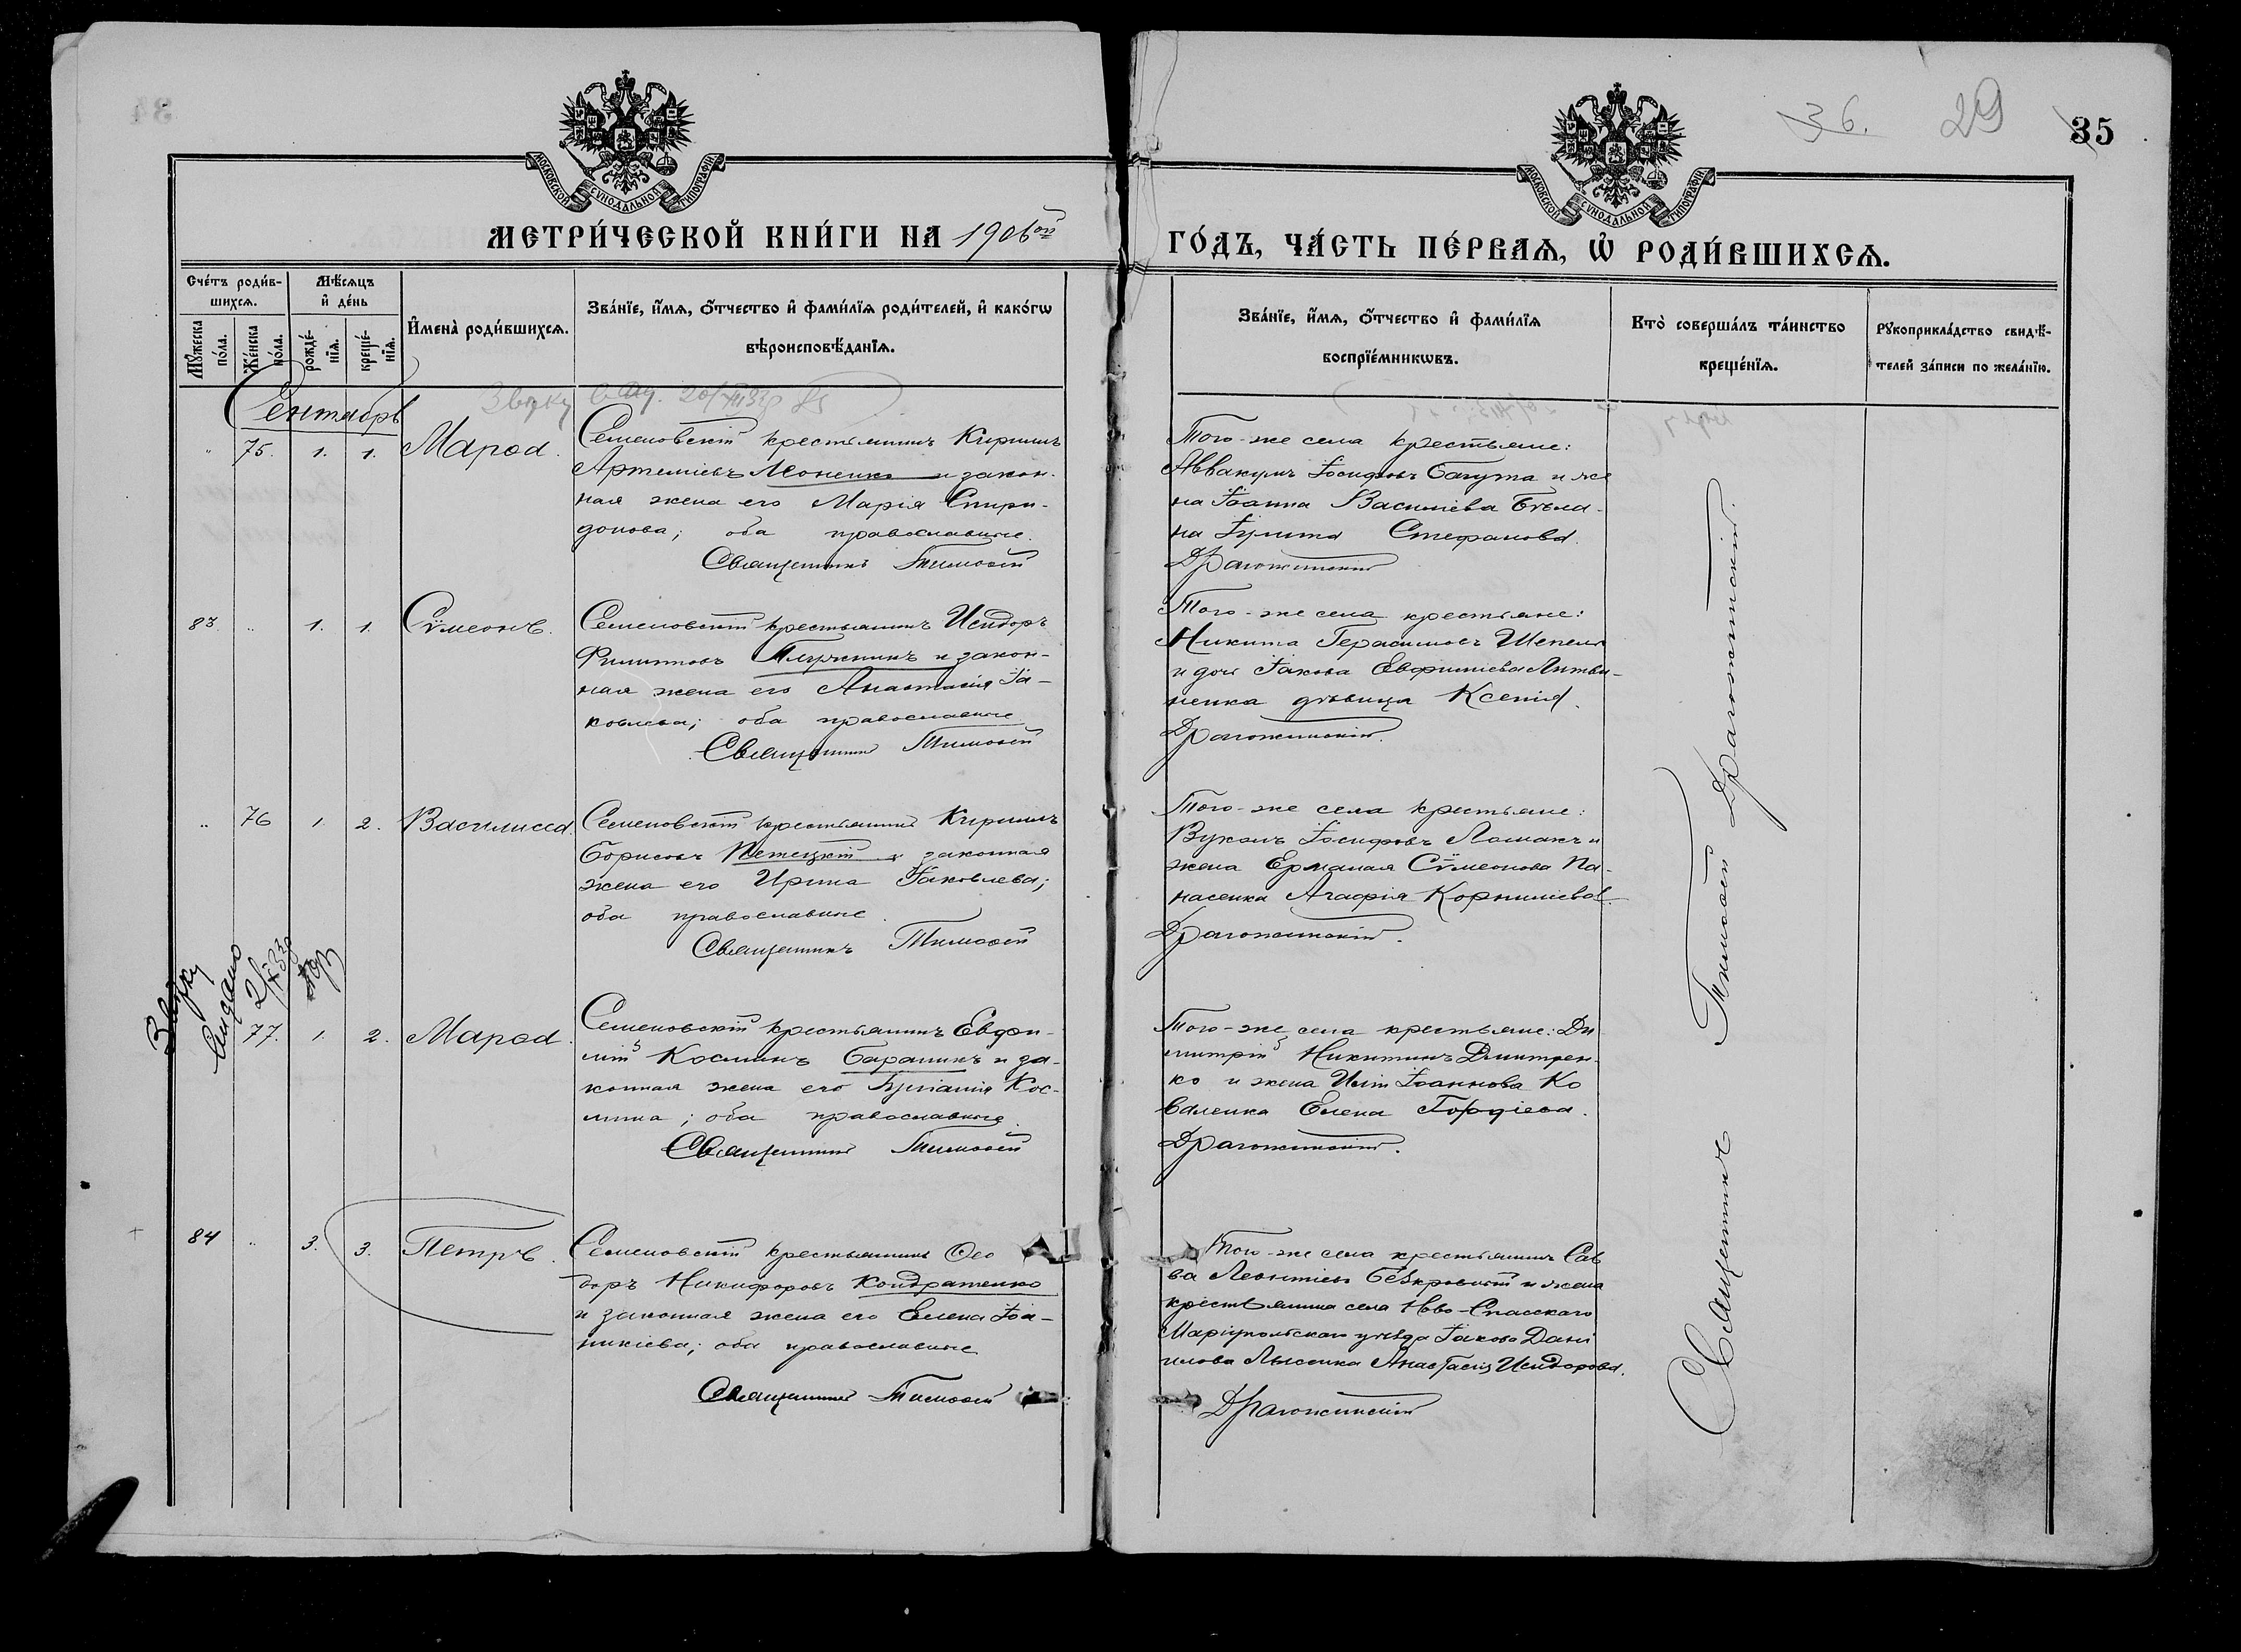 36. 29 35
МОСКОВСКОЙ СѴНОДАЛЬНОЙ ТИПОГРАФІИ
МОСКОВСКОЙ СѴНОДАЛЬНОЙ ТИПОГРАФІИ
МЕТРИ́ЧЕСКОЙ КНИ́ГИ НА 1906ой ГО́ДЪ, ЧА́СТЬ ПЕ́РВАѦ, Ѡ РОДИ́ВШИХСѦ.
Сче́тъ роди́в-
шихсѧ.
Мꙋ́жеска по́ла.
Же́нска по́ла.
Мѣ́сѧцъ
и҆ де́нь
рожде́-
нїѧ.
креще́-
нїѧ.
И҆мена̀ роди́вшихсѧ.
Зва́нїе, и҆́мѧ, ѻ҆́тчество и҆ фами́лїѧ роди́телей, и҆ како́гѡ
вѣроисповѣ́данїѧ.
Зва́нїе, и҆́мѧ, ѻ҆́тчество и҆ фами́лїѧ
воспрїе́мникѡвъ.
Кто̀ соверша́лъ та́инство
креще́нїѧ.
Рꙋкоприкла́дство свидѣ́-
телей за́писи по жела́нїю.
Сентябрь
75. 1. 1. Марѳа.
Семеновскій крестьянинъ Кириллъ
Артеміевъ и закон-
ная жена его Марія Спири-
донова; оба православные.
Священникъ Тимоѳей
Того-же села крестьяне:
Аввакумъ Іосифовъ Багута и же
на Іоанна Васильева Бѣла-
на Іулита Стефанова.
Драгожинскій
83. 1. 1. Сѵмеонъ.
Семеновскій крестьянинъ Исидоръ
Филипповъ и закон-
ная жена его Анастасія Іа-
ковлева; оба православные
Священникъ Тимоѳей
Того-же села крестьяне:
Никита Герасимовъ Шепель
и дочь Іакова Евфиміева Литви-
ненка дѣвица Ксенія.
Драгожинскій.
76 1. 2. Василисса.
Семеновскій крестьянинъ Кириллъ
Борисовъ и законная
жена его Ирина Іаковлева;
оба православные.
Священникъ Тимоѳей
Того-же села крестьяне:
Вуколъ Іосифовъ Ломакъ и
жена Ермолая Сѵмеонова Па-
насенка Агафія Корниліева.
Драгожинскій.
77. 1. 2. Марѳа.
Семеновскій крестьянинъ Евфи-
мій Косминъ Баранникъ и за-
конная жена его Іуліанія Кос-
мина; оба православные.
Священникъ Тимоѳей
Того-же села крестьяне: Ди
митрій Никитинъ Дмитрен-
ко и жена Иліи Іоаннова Ко
валенка Елена Гордіева.
Драгожинскій.
84 3. 3. Петръ.
Семеновскій крестьянинъ Ѳео
доръ Никифоровъ Кондратенко
и законная жена его Елена Іоа-
никіева; оба православные
Священникъ Тимоѳей
Того-же села крестьянинъ Сав
ва Леонтіевъ Безкровный и жена
крестьянина села Ново-Спасскаго
Маріупольскаго уѣзда Іакова Дани
илова Лысенка Анастасія Исидорова.
Драгожинскій
Священникъ Тимоѳей Драгожинскій.